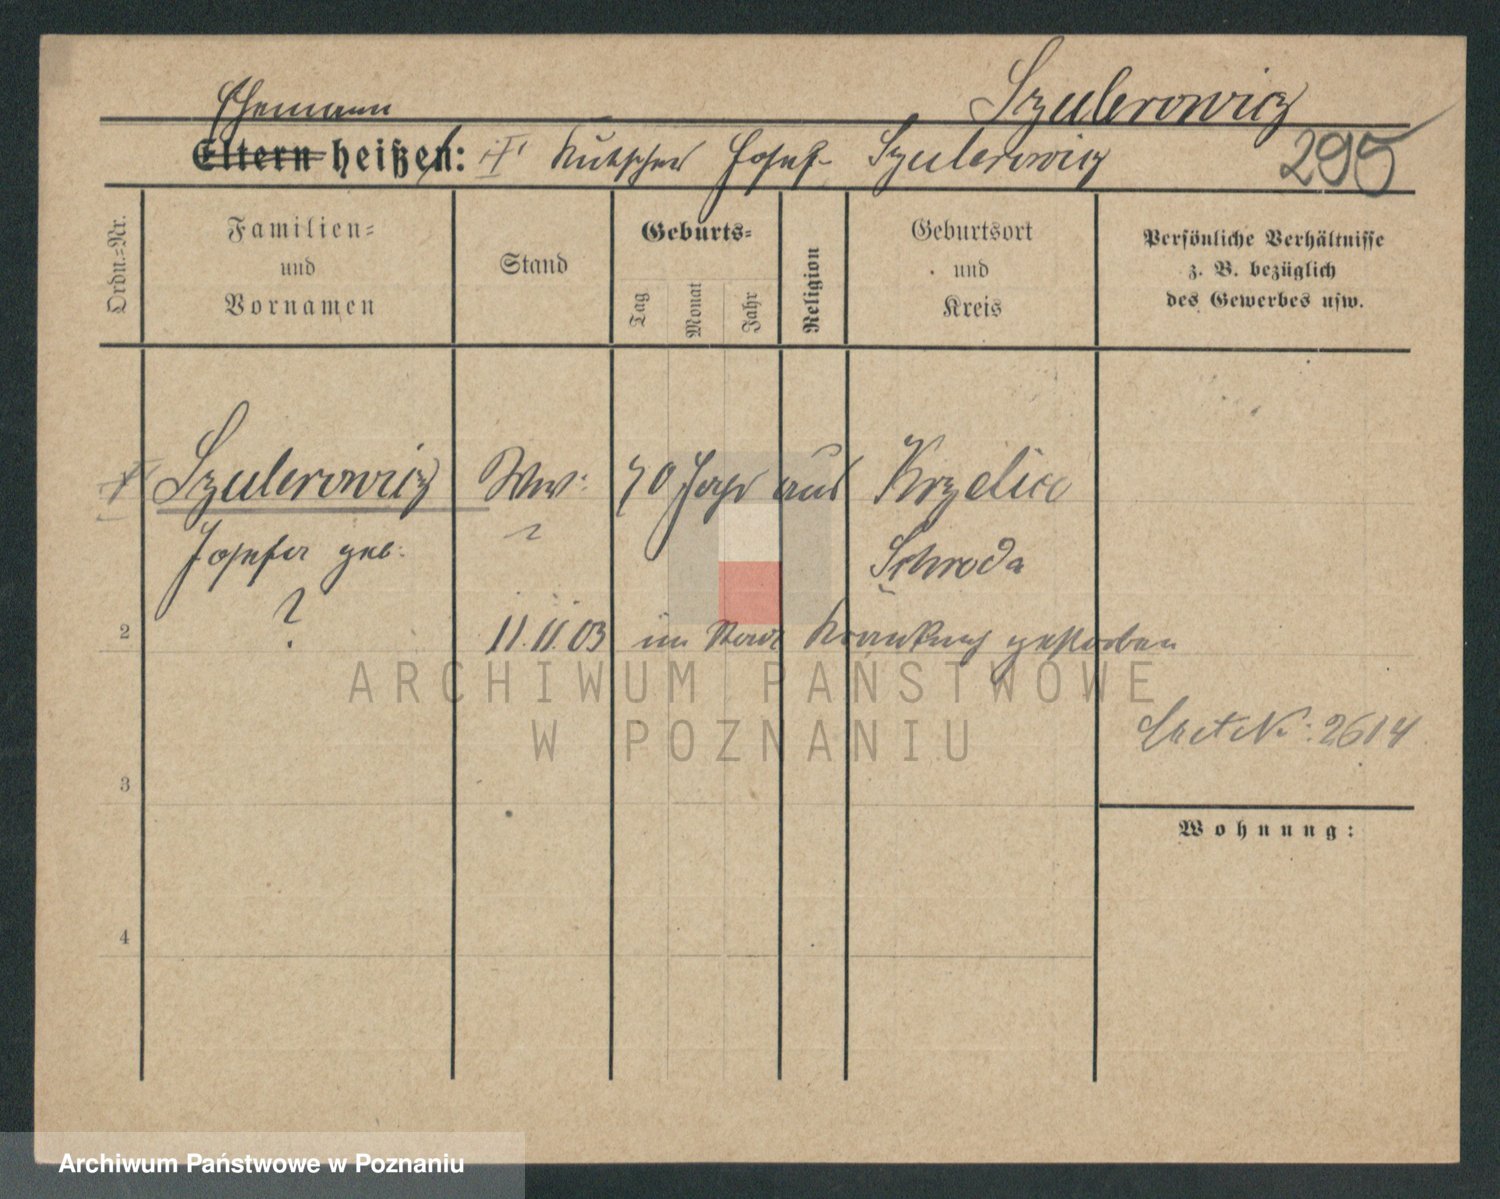 Szulerowicz
Ehemann
Eltern heißen: † Kutscher Josef Szulerowicz
295
Ordn.-Nr.
Familien-
und
Vornamen
Stand
Geburts-
Tag
Monat
Jahr
Religion
Geburtsort
und
Kreis
Persönliche Verhältnisse
z. B. bezüglich
des Gewerbes usw.
† Szulerowicz Ww: 70 Jahr aus
Schroda
Josefa geb:
?
2
11.11.03 im Stadt Krankenhs gestorben
ARCHIWUM PAŃSTWOWE
W POZNANIU
2614
3
Wohnung:
4
Archiwum Państwowe w Poznaniu